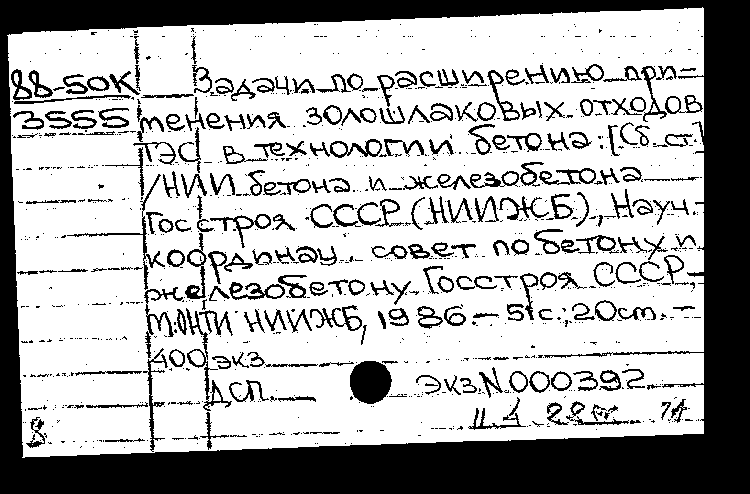 88-50К Задачи по расширению при-
3555 менения золошлаковых отходов
ТЭС в технологии бетона: [Сб. ст.]
/НИИ бетона и железобетона
Госстроя СССР (НИИЖБ), Науч.-
координац. совет по бетону и
железобетону Госстроя СССР,-
М.: ОНТИ НИИЖБ, 1986.- 51 с.; 20 см. -
400 экз
ДСП Экз.N.000392
8